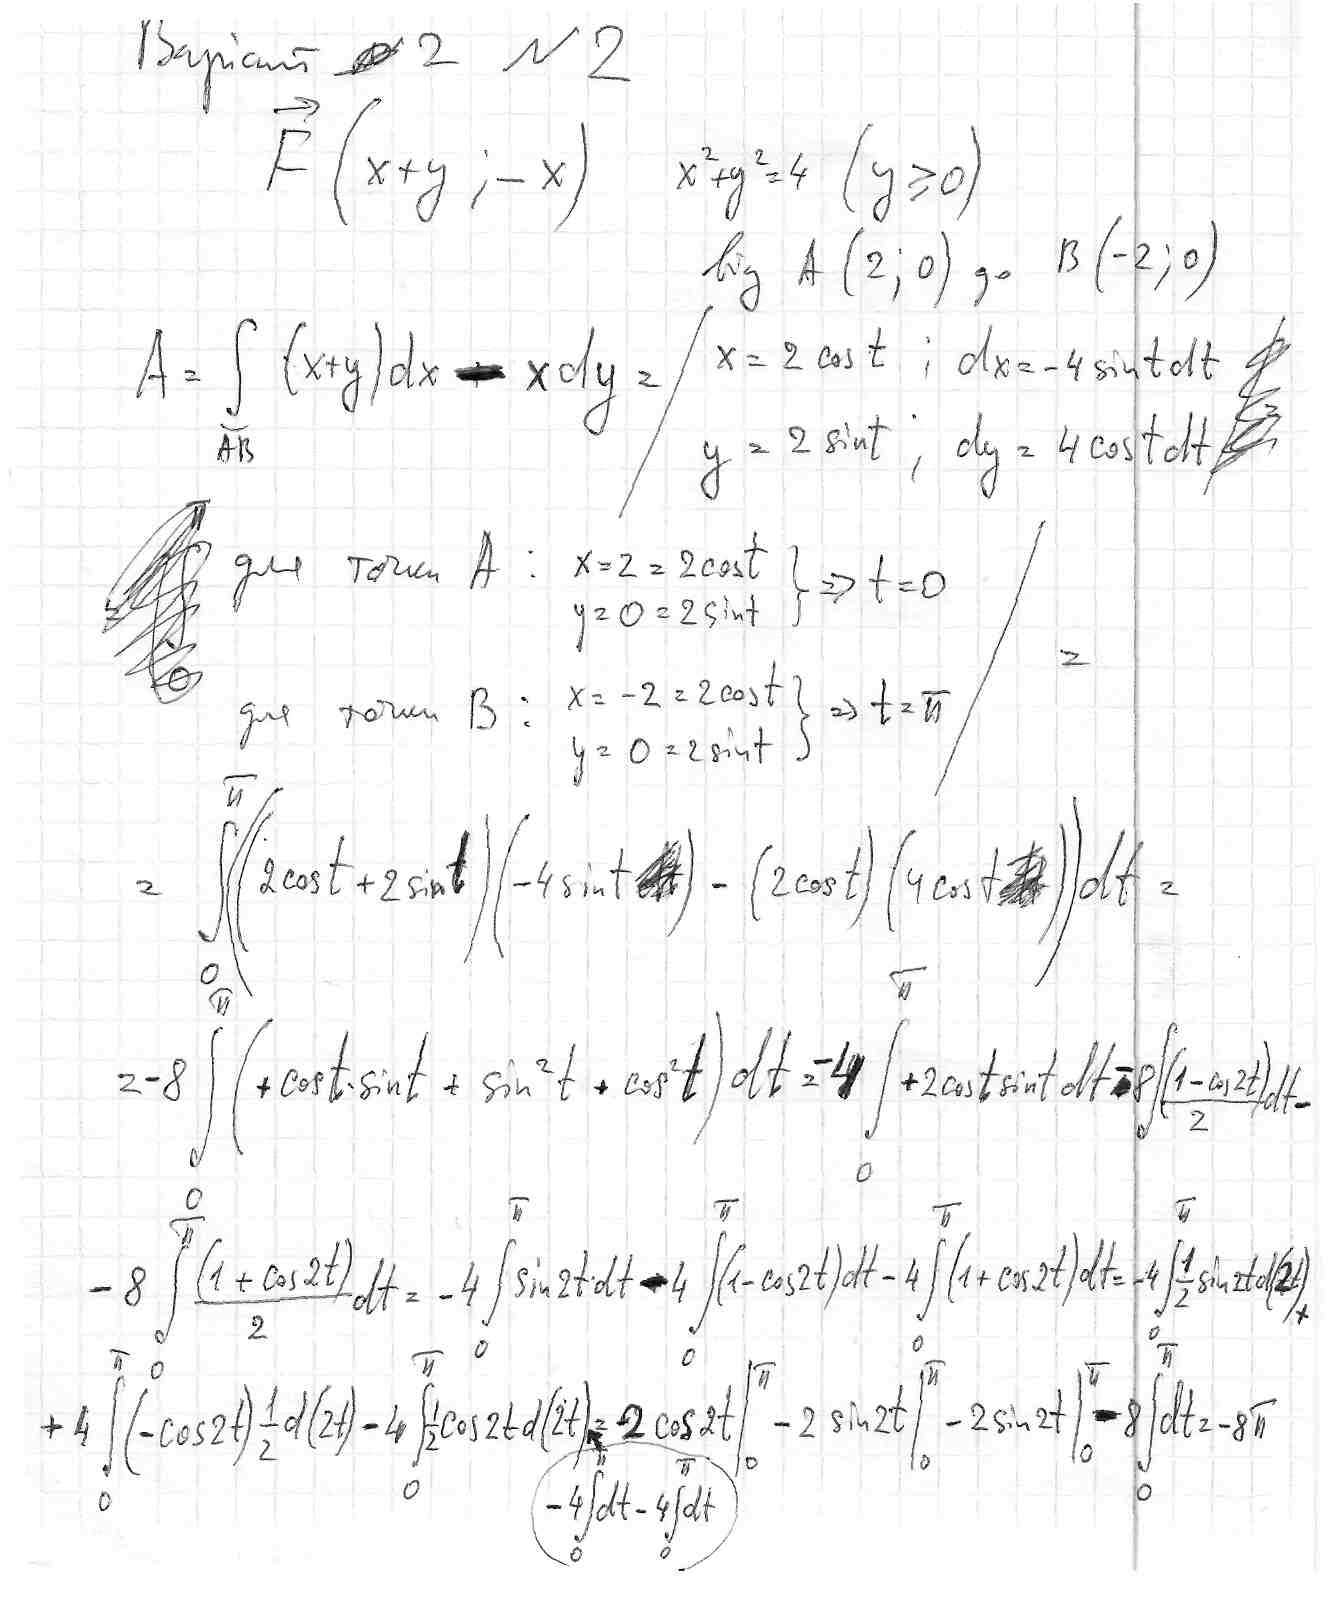 Варіант 2 N2
F⃗ (x+y ; -x) x²+y²=4 (y⩾0)
від A (2; 0) до B (-2; 0)
A = ∫_{AB} (x+y)dx - xdy = / x = 2 cost ; dx = -4 sint dt
y = 2 sint ; dy = 4 cost dt
для точки A : x=2=2cost y=0=2sint } => t=0
для точки B : x=-2=2cost y=0=2sint } => t=π / =
= ∫_0^π ((2cost + 2sint)(-4sint) - (2cost)(4cost))dt =
= -8 ∫_0^π (+cost·sint + sin²t + cos²t) dt = -4 ∫_0^π +2cost sint dt - 8∫_0 (1-cos2t)/2 dt -
- 8 ∫_0^π (1+cos2t)/2 dt = -4 ∫_0^π sin2t·dt - 4 ∫_0^π (1-cos2t)dt - 4 ∫_0^π (1+cos2t)dt = -4 ∫_0^π 1/2 sin2t d(2t) +
+ 4 ∫_0^π (-cos2t) 1/2 d(2t) - 4 ∫_0^π 1/2 cos2t d(2t) = 2 cos2t |_0^π - 2 sin2t |_0^π - 2 sin2t |_0^π - 8 ∫_0^π dt = -8π
-4 ∫_0^π dt - 4 ∫_0^π dt